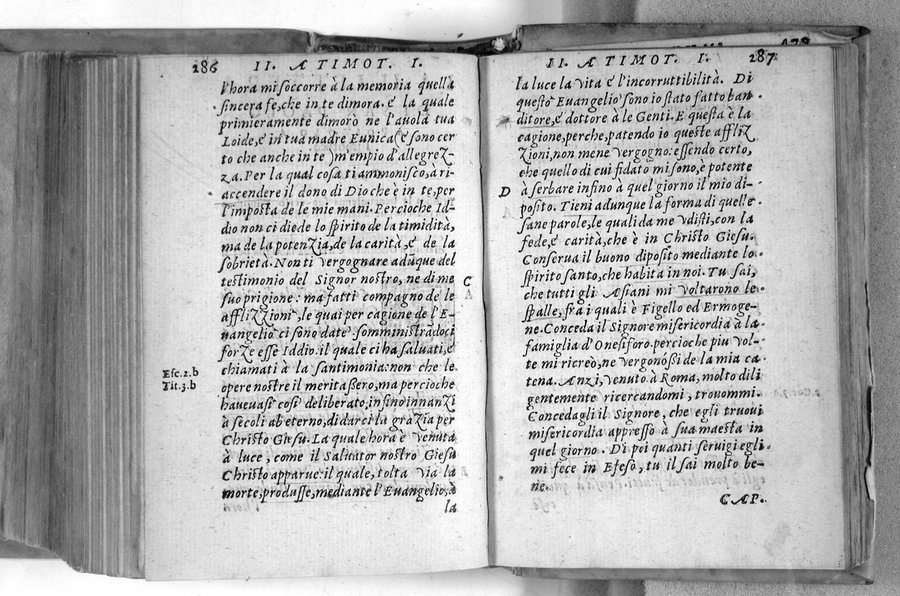 286 II. A TIMOT. I.
l'hora mi soccorre à la memoria quella
sincera fe, che in te dimora. e la quale
primieramente dimorò ne l'auola tua
Loide, e in tua madre Eunica (e sono cer
to che anche in te) m'empio d'allegrez-
za. Per la qual cosa ti ammonisco, a ri-
accendere il dono di Dio che è in te, per
l'imposta de le mie mani. Percioche Id-
dio non ci diede lo spirito de la timidità,
ma de la potenzia, de la carità, e de la
sobrietà. Non ti vergognare adũque del
testimonio del Signor nostro, ne di me
suo prigione: ma fatti compagno de le
afflizzioni, le quai per cagione de l'E-
uangelio ci sono date: somministrãdoci
forze esse Iddio. il quale ci ha saluati, e
chiamati à la santimonia: non che le
opere nostre il meritassero, ma percioche
haueuasi così deliberato, infino innanzi
à secoli ab eterno, di darci la grazia per
Christo Giesu. La quale hora è venuta
à luce, come il Saluator nostro Giesu
Christo apparue: il quale, tolta via la
morte, produsse, mediante l'Euangelio, à
la
C
Efc. 2. b
Tit. 3. b
II. A TIMOT. I. 287
la luce la vita e l'incorruttibilità. Di
questo Euangelio sono io stato fatto ban-
ditore, e dottore à le Genti. E questa è la
cagione, perche, patendo io queste affliz
zioni, non mene vergogno: essendo certo,
che quello di cui fidato mi sono, è potente
à serbare infino à quel giorno il mio di-
posito. Tieni adunque la forma di quelle
sane parole, le quali da me vdisti, con la
fede, e carità, che è in Christo Giesu.
Conserua il buono diposito mediante lo
spirito santo, che habita in noi. Tu sai,
che tutti gli Asiani mi voltarono le
spalle, fra i quali è Figello ed Ermoge-
ne. Conceda il Signore misericordia à la
famiglia d'Onesiforo. percioche piu vol-
te mi ricreò, ne vergonóssi de la mia ca-
tena. Anzi, venuto à Roma, molto dili
gentemente ricercandomi, trouommi.
Concedagli il Signore, che egli truoui
misericordia appresso à sua maesta in
quel giorno. Di pei quanti seruigi egli
mi fece in Efeso, tu il sai molto be-
ne.
CAP.
D